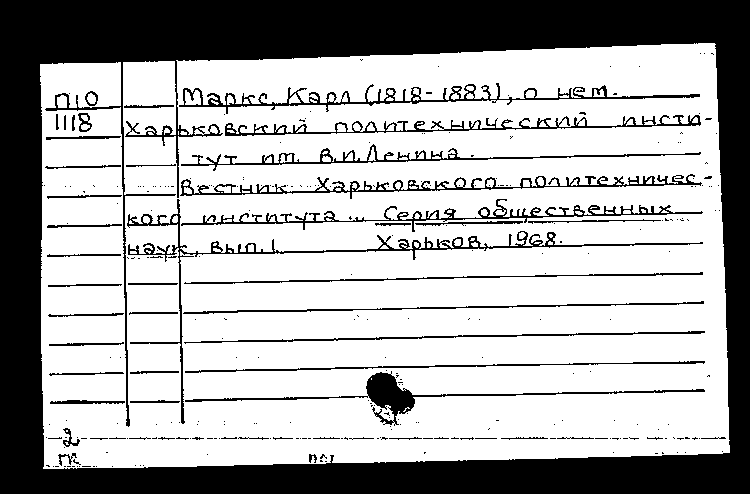 П10 Маркс, Карл (1818-1883), о нем.
1118 Харьковский политехнический инсти-
тут им. В.И.Ленина.
Вестник Харьковского политехничес-
кого института... Серия общественных
наук, вып.1. Харьков, 1968.
2
ГК